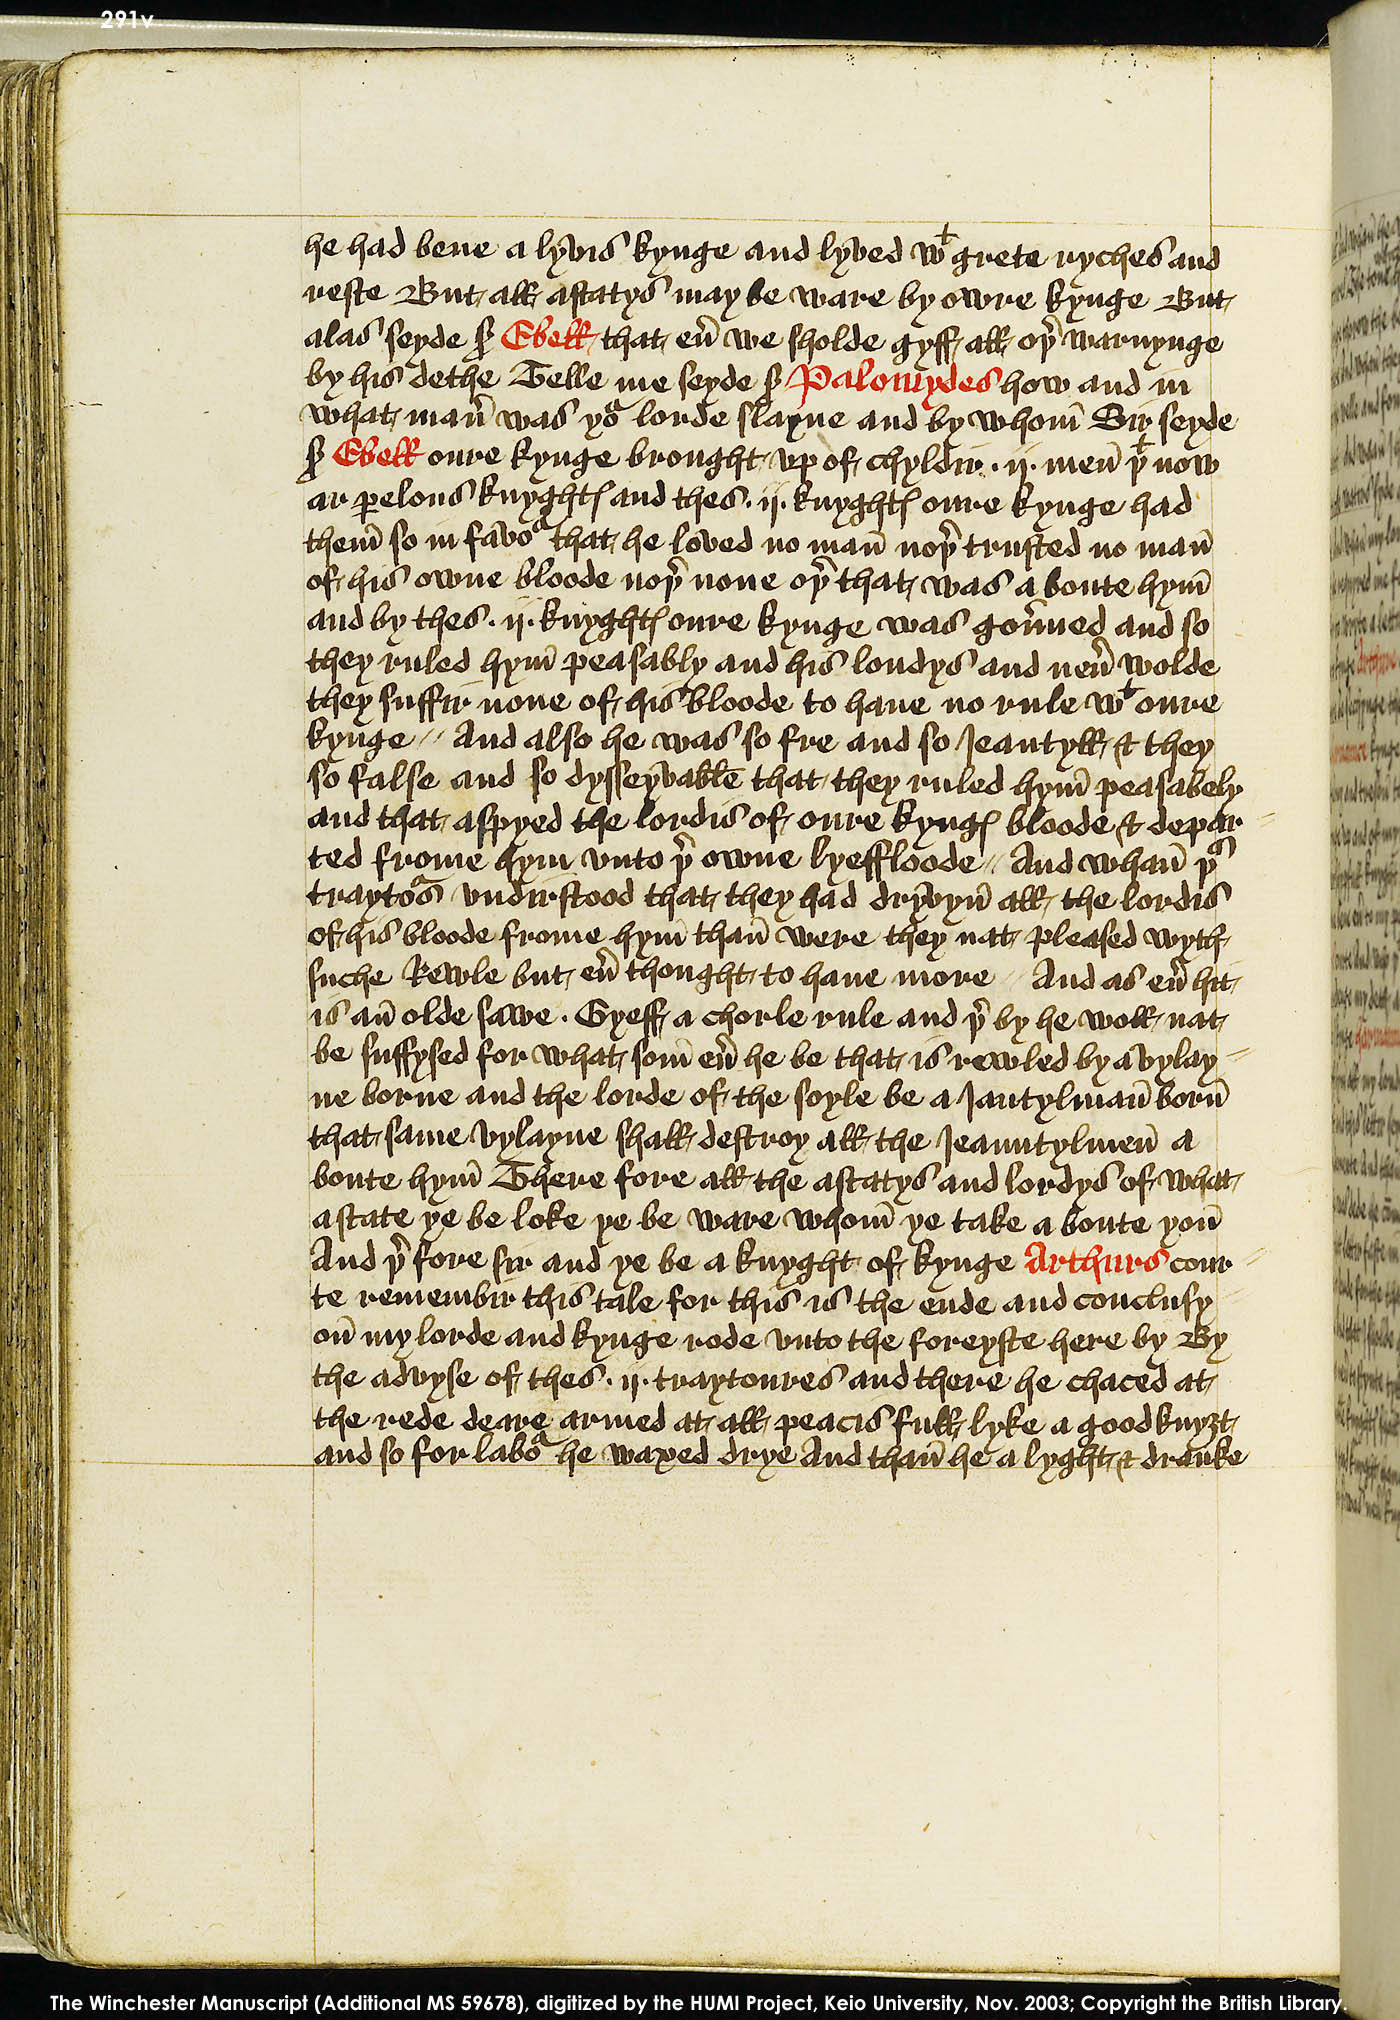 291v
he had bene a lyvis kynge and lyved wᵗ grete ryches and
reste But all astatys may be ware by owre kynge But
alas seyde sʳ Ebell that eũ we sholde gyff all oþ̉ warnynge
by his dethe Telle me seyde sʳ Palomydes how and in
what man̉ was yoᵃ lorde slayne and by whom̄ Sir seyde
sʳ Ebell oure kynge brought vp of chyldir · ij · men̄ þᵗ now
ar ꝑelous knyghtꝭ and thes · ij · knyghtꝭ oure kynge had
them̄ so in favoᵃ that he loved no man̄ noþ̉ trusted no man̄
of his owne bloode noþ̉ none oþ̉ that was a boute hym̄
and by thes · ij · knyghtꝭ oure kynge was goủned and so
they ruled hym̄ peasably and his londys and neủ wolde
they suffir none of his bloode to haue no rule wᵗ oure
kynge // And also he was so fre and so Jeantyll & they
so false and so dysseyvable that they ruled hym̄ peasabely
and that aspyed the lordis of oure kyngꝭ bloode & depar =
ted frome hym vnto þ̉ owne lyeffloode // And whan̄ þˢ
traytoᵃs vndirstood that they had dryvyn̄ all the lordis
of his bloode frome hym̄ than̄ were they nat pleased wyth
suche Rewle but eủ thought to haue more // And as eủ hit
is an̄ olde sawe · Gyeff a chorle rule and þ̉ by he woll nat
be suffysed for what som̄ eủ he be that is rewled by a vylay =
ne borne and the lorde of the soyle be a Jantylman̄ born̄
that same vylayne shall destroy all the Jeauntylmen̄ a
boute hym̄ There fore all the astatys and lordys of what
astate ye be loke ye be ware whom̄ ye take a boute you̅
And þ̉ fore sir and ye be a knyght of kynge Arthurs cour =
te remembir this tale for this is the ende and conclusy
on̄ my lorde and kynge rode vnto the foreyste here by By
the advyse of thes · ij · traytoures and there he chaced at
the rede deare armed at all peacis full lyke a good knyȝt
and so for laboᵃ he waxed drye And than̄ he a lyght & dranke
The Winchester Manuscript (Additional MS 59678), digitized by the HUMI Project, Keio University, Nov. 2003; Copyright the British Library.